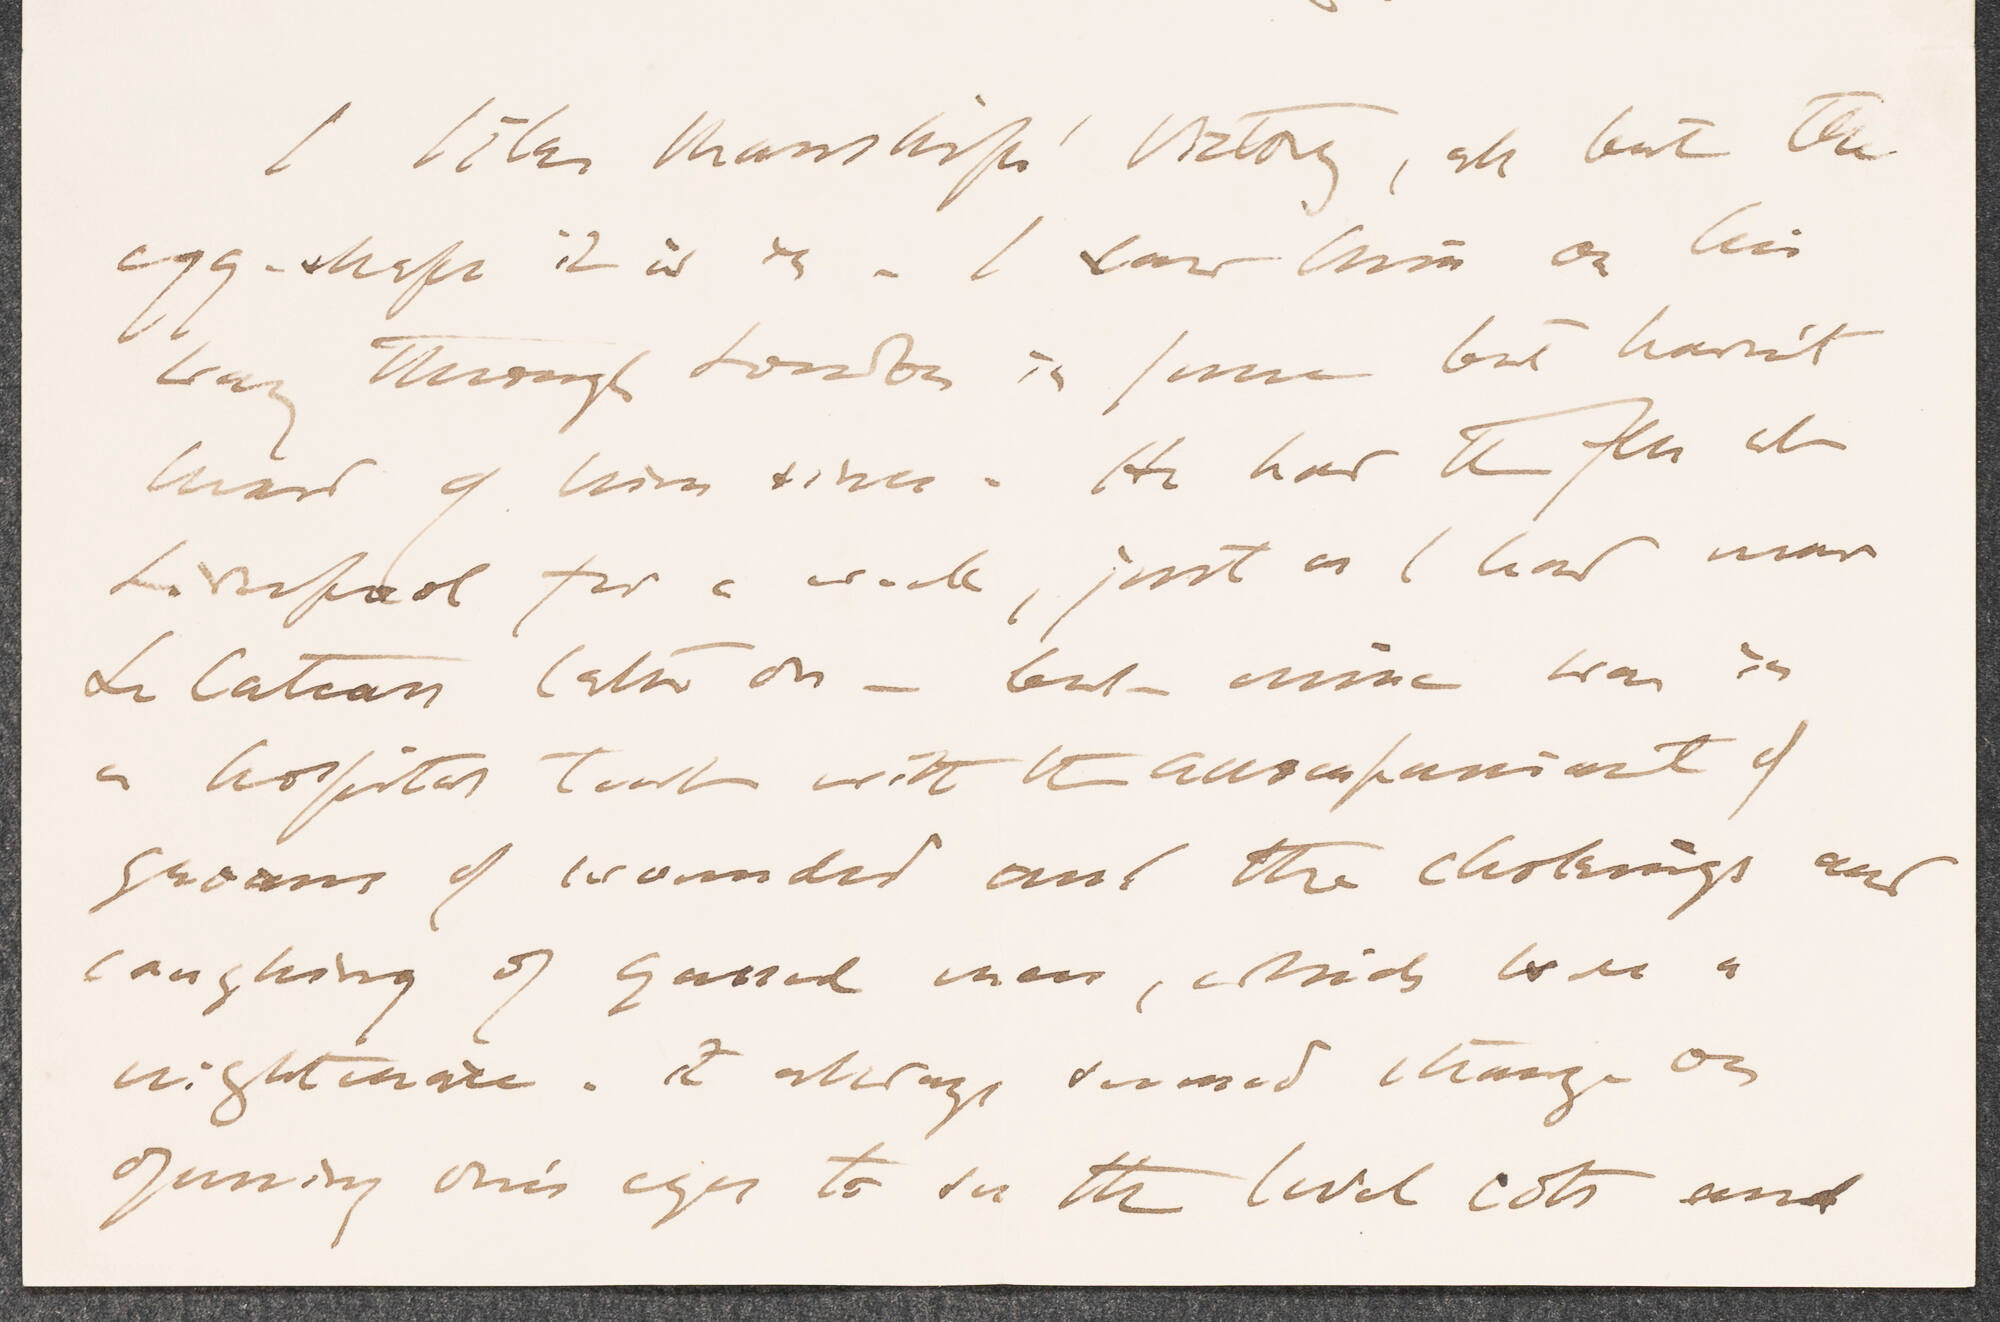 I like Manship's Victory, all but the
egg-shape it is in - I saw him on his
way through London in June but haven't
heard of him since - He had the flu at
Liverpool for a week, just as I had near
Le Cateau later on - but mine was in
a hospital tent with the accompaniment of
groans of wounded and the chokings and
coughing of gassed men, which was a
nightmare - it always seemed strange on
opening one's eyes to see the level cots and